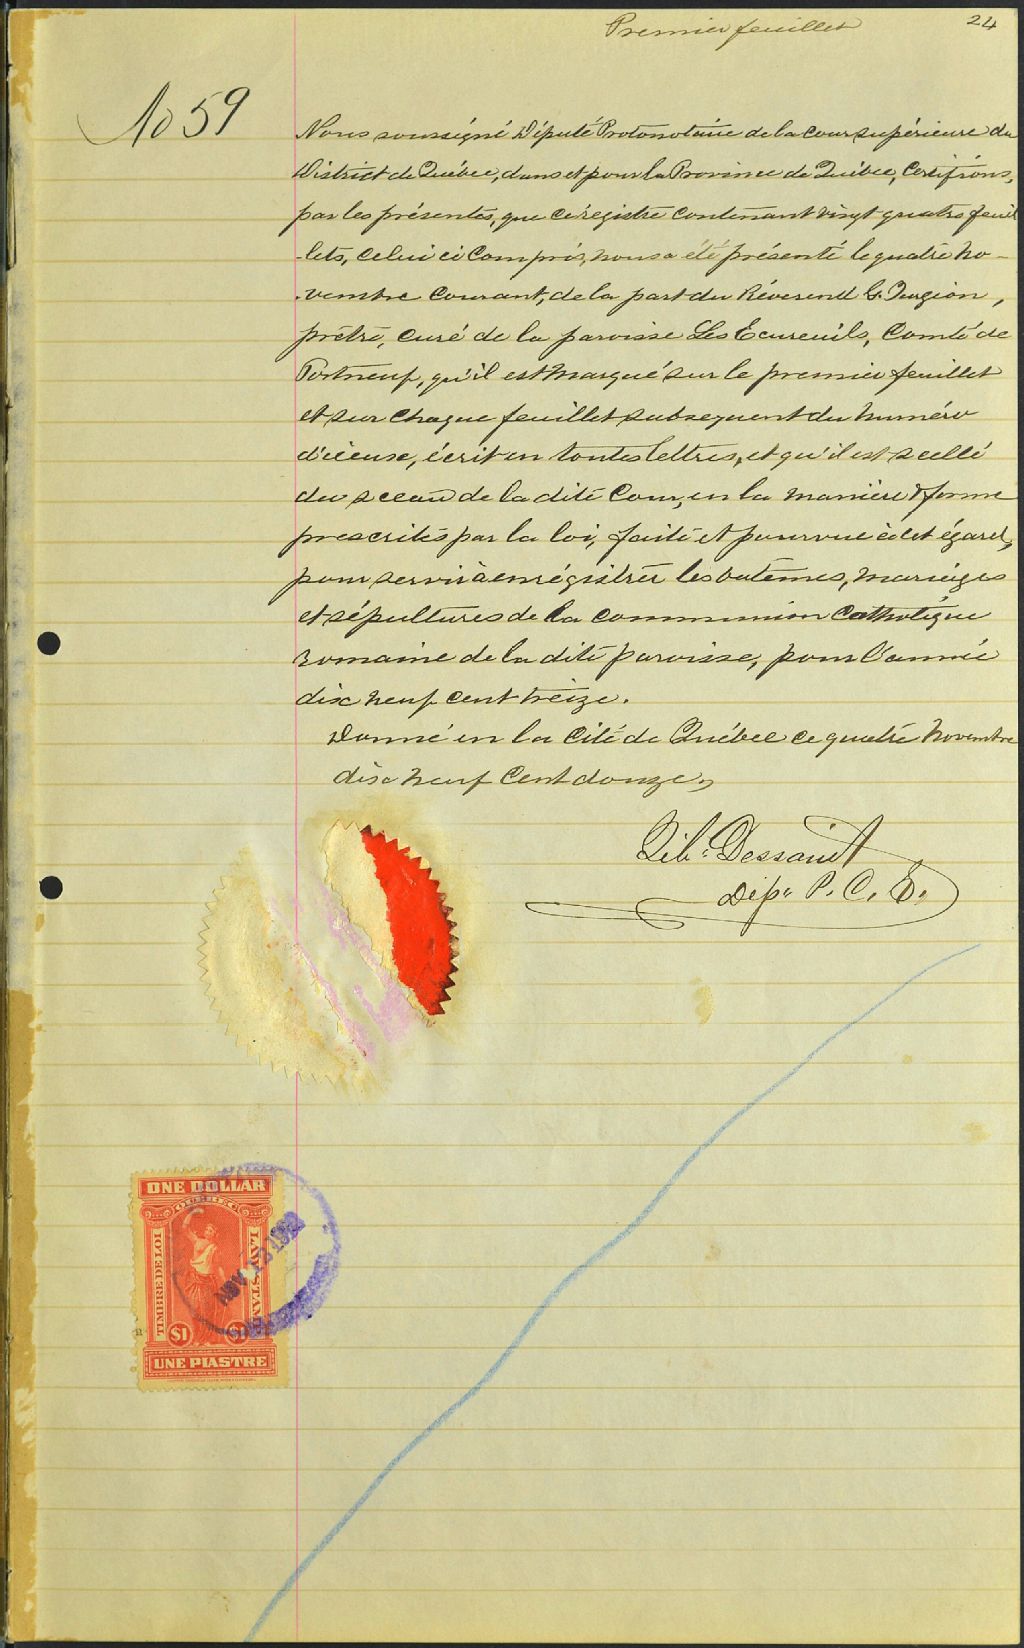 Premier feuillet
24
No 59
Nous soussigné Député Protonotaire de la cour supérieure du
District de Québec, dans et pour la Province de Québec, Certifions,
par les présentes, que ce régistre contenant vingt-quatre feuil
-lets, celui ci compris, nous a été présenté le quatre No-
-vembre courant, de la part du Réverend G. Turgeon,
prêtre, curé de la paroisse Les Ecureuils, Comté de
Portneuf, qu'il est marqué sur le premier feuillet
et sur chaque feuillet subsequent du numéro
d'iceux, écrit en toutes lettres, et qu'il est scellé
du sceau de la dite Cour, en la manière & forme
prescrites par la loi, faite et pourvue à cet égard,
pour servir à enrégistrer les batêmes, mariages
et sépultures de la communion Catholique
romaine de la dite paroisse, pour l'année
dix neuf cent treize.
Donné en la Cité de Québec ce quatre Novembre
dix neuf cent douze,
Dep. P. C. S.
ONE DOLLAR
QUEBEC
TIMBRE DE LOI
LAW STAMP
$1
UNE PIASTRE